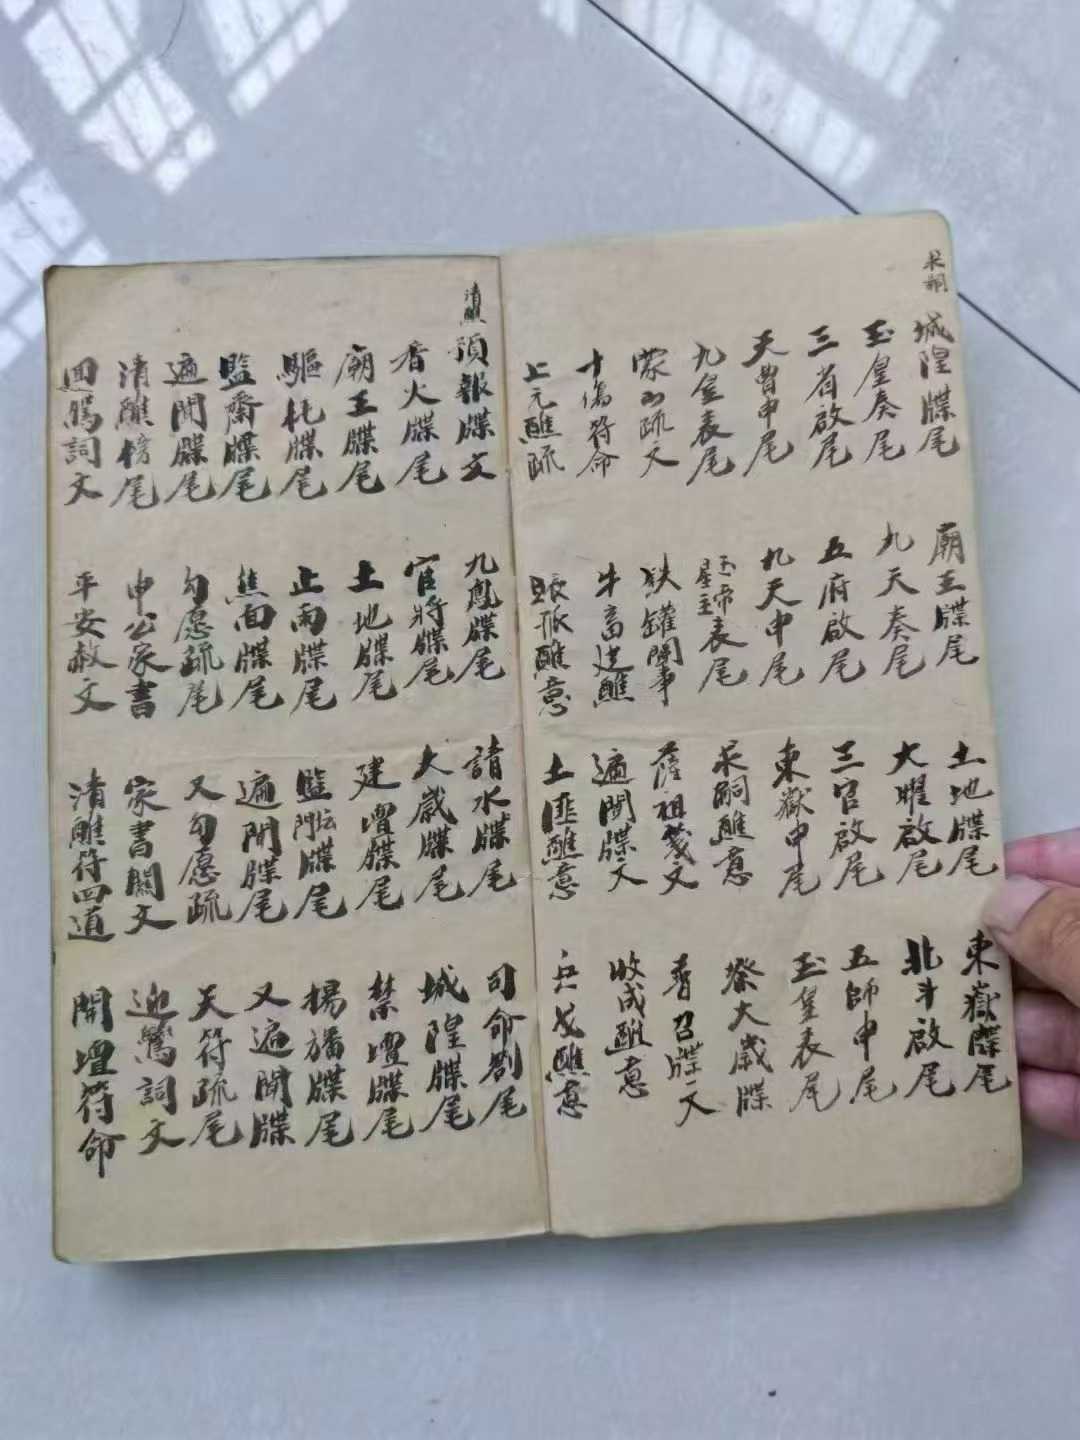 求嗣
城隍牒尾 廟王牒尾 土地牒尾 東嶽牒尾
玉皇奏尾 九天奏尾 大曜啟尾 北斗啟尾
三省啟尾 五府啟尾 三官啟尾 五師申尾
天曹申尾 九天申尾 東嶽申尾 玉皇表尾
九皇表尾 玉帝星主表尾 求嗣醮意 祭大歲牒
蒙山疏文 鉄罐関事 薩祖箋文 召牒文
十傷符命 牛畜建醮 遍聞牒文 收成醮意
上元醮疏 賑孤醮意 土匪醮意 兵戈醮意
清醮
預報牒文 九鳳牒尾 請水牒尾 司命劄尾
香火牒尾 官將牒尾 大歲牒尾 城隍牒尾
廟王牒尾 土地牒尾 建壇牒尾 禁壇牒尾
驅牒尾 止雨牒尾 監門坛牒尾 揚旛牒尾
監齋牒尾 焦面牒尾 遍聞牒尾 又遍聞牒
遍聞牒尾 勾愿疏尾 又勾愿疏 天符疏尾
清醮榜尾 申公家書 家書關文 迎鸞詞文
回鸞詞文 平安赦文 清醮符四道 開壇符命